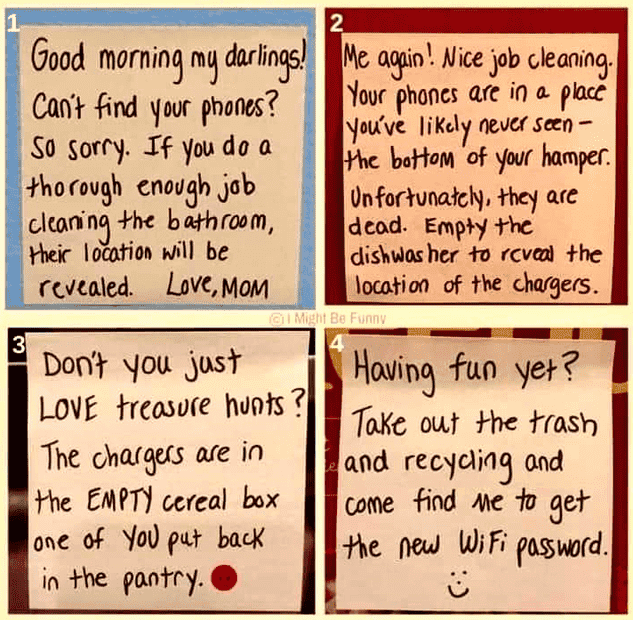 1
Good morning my darlings!
Can't find your phones?
So sorry. If you do a
thorough enough job
cleaning the bathroom,
their location will be
revealed. Love, MOM
2
Me again! Nice job cleaning.
Your phones are in a place
you've likely never seen –
the bottom of your hamper.
Unfortunately, they are
dead. Empty the
dishwasher to reveal the
location of the chargers.
© I Might Be Funny
3
Don't you just
LOVE treasure hunts?
The chargers are in
the EMPTY cereal box
one of YOU put back
in the pantry.
4
Having fun yet?
Take out the trash
and recycling and
come find me to get
the new WiFi password.